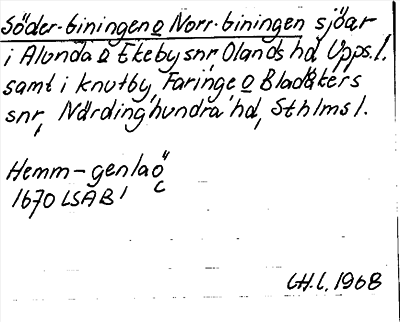 Söder-Giningen o Norr-Giningen sjöar
i Alunda o Ekeby snr Olands hd, Upps.l.
samt i Knutby, Faringe o Bladåkers
snr, Närdinghundra hd, Sthlms l.
Hemm-genlaö
1670 LSA B 1
1968